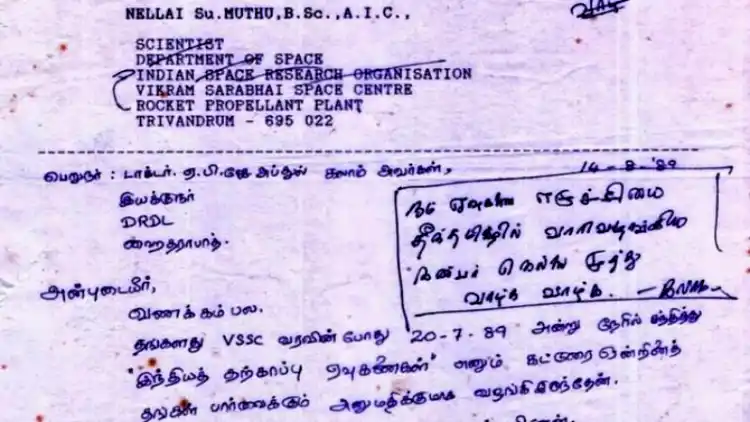 NELLAI Su.MUTHU,B.Sc.,A.I.C.,
SCIENTIST
DEPARTMENT OF SPACE
INDIAN SPACE RESEARCH ORGANISATION
VIKRAM SARABHAI SPACE CENTRE
ROCKET PROPELLANT PLANT
TRIVANDRUM - 695 022
பெறுநர் : டாக்டர். ஏ.பி.ஜே அப்துல் கலாம் அவர்கள்,
14-8-'89
இயக்குநர்
DRDL
ஹைதராபாத்.
நம் ஏவுகணை
தீந்தமிழில்
நண்பர் நெல்லை முத்து
வாழ்க வாழ்க.
அன்புடையீர்,
வணக்கம் பல.
தங்களது VSSC வரவின் போது 20-7-89 அன்று நேரில் சந்தித்து
"இந்தியத் தற்காப்பு ஏவுகணைகள்" எனும் கட்டுரை ஒன்றினைத்
தங்கள் பார்வைக்கும் அனுமதிக்குமாக வழங்கியிருந்தேன்.